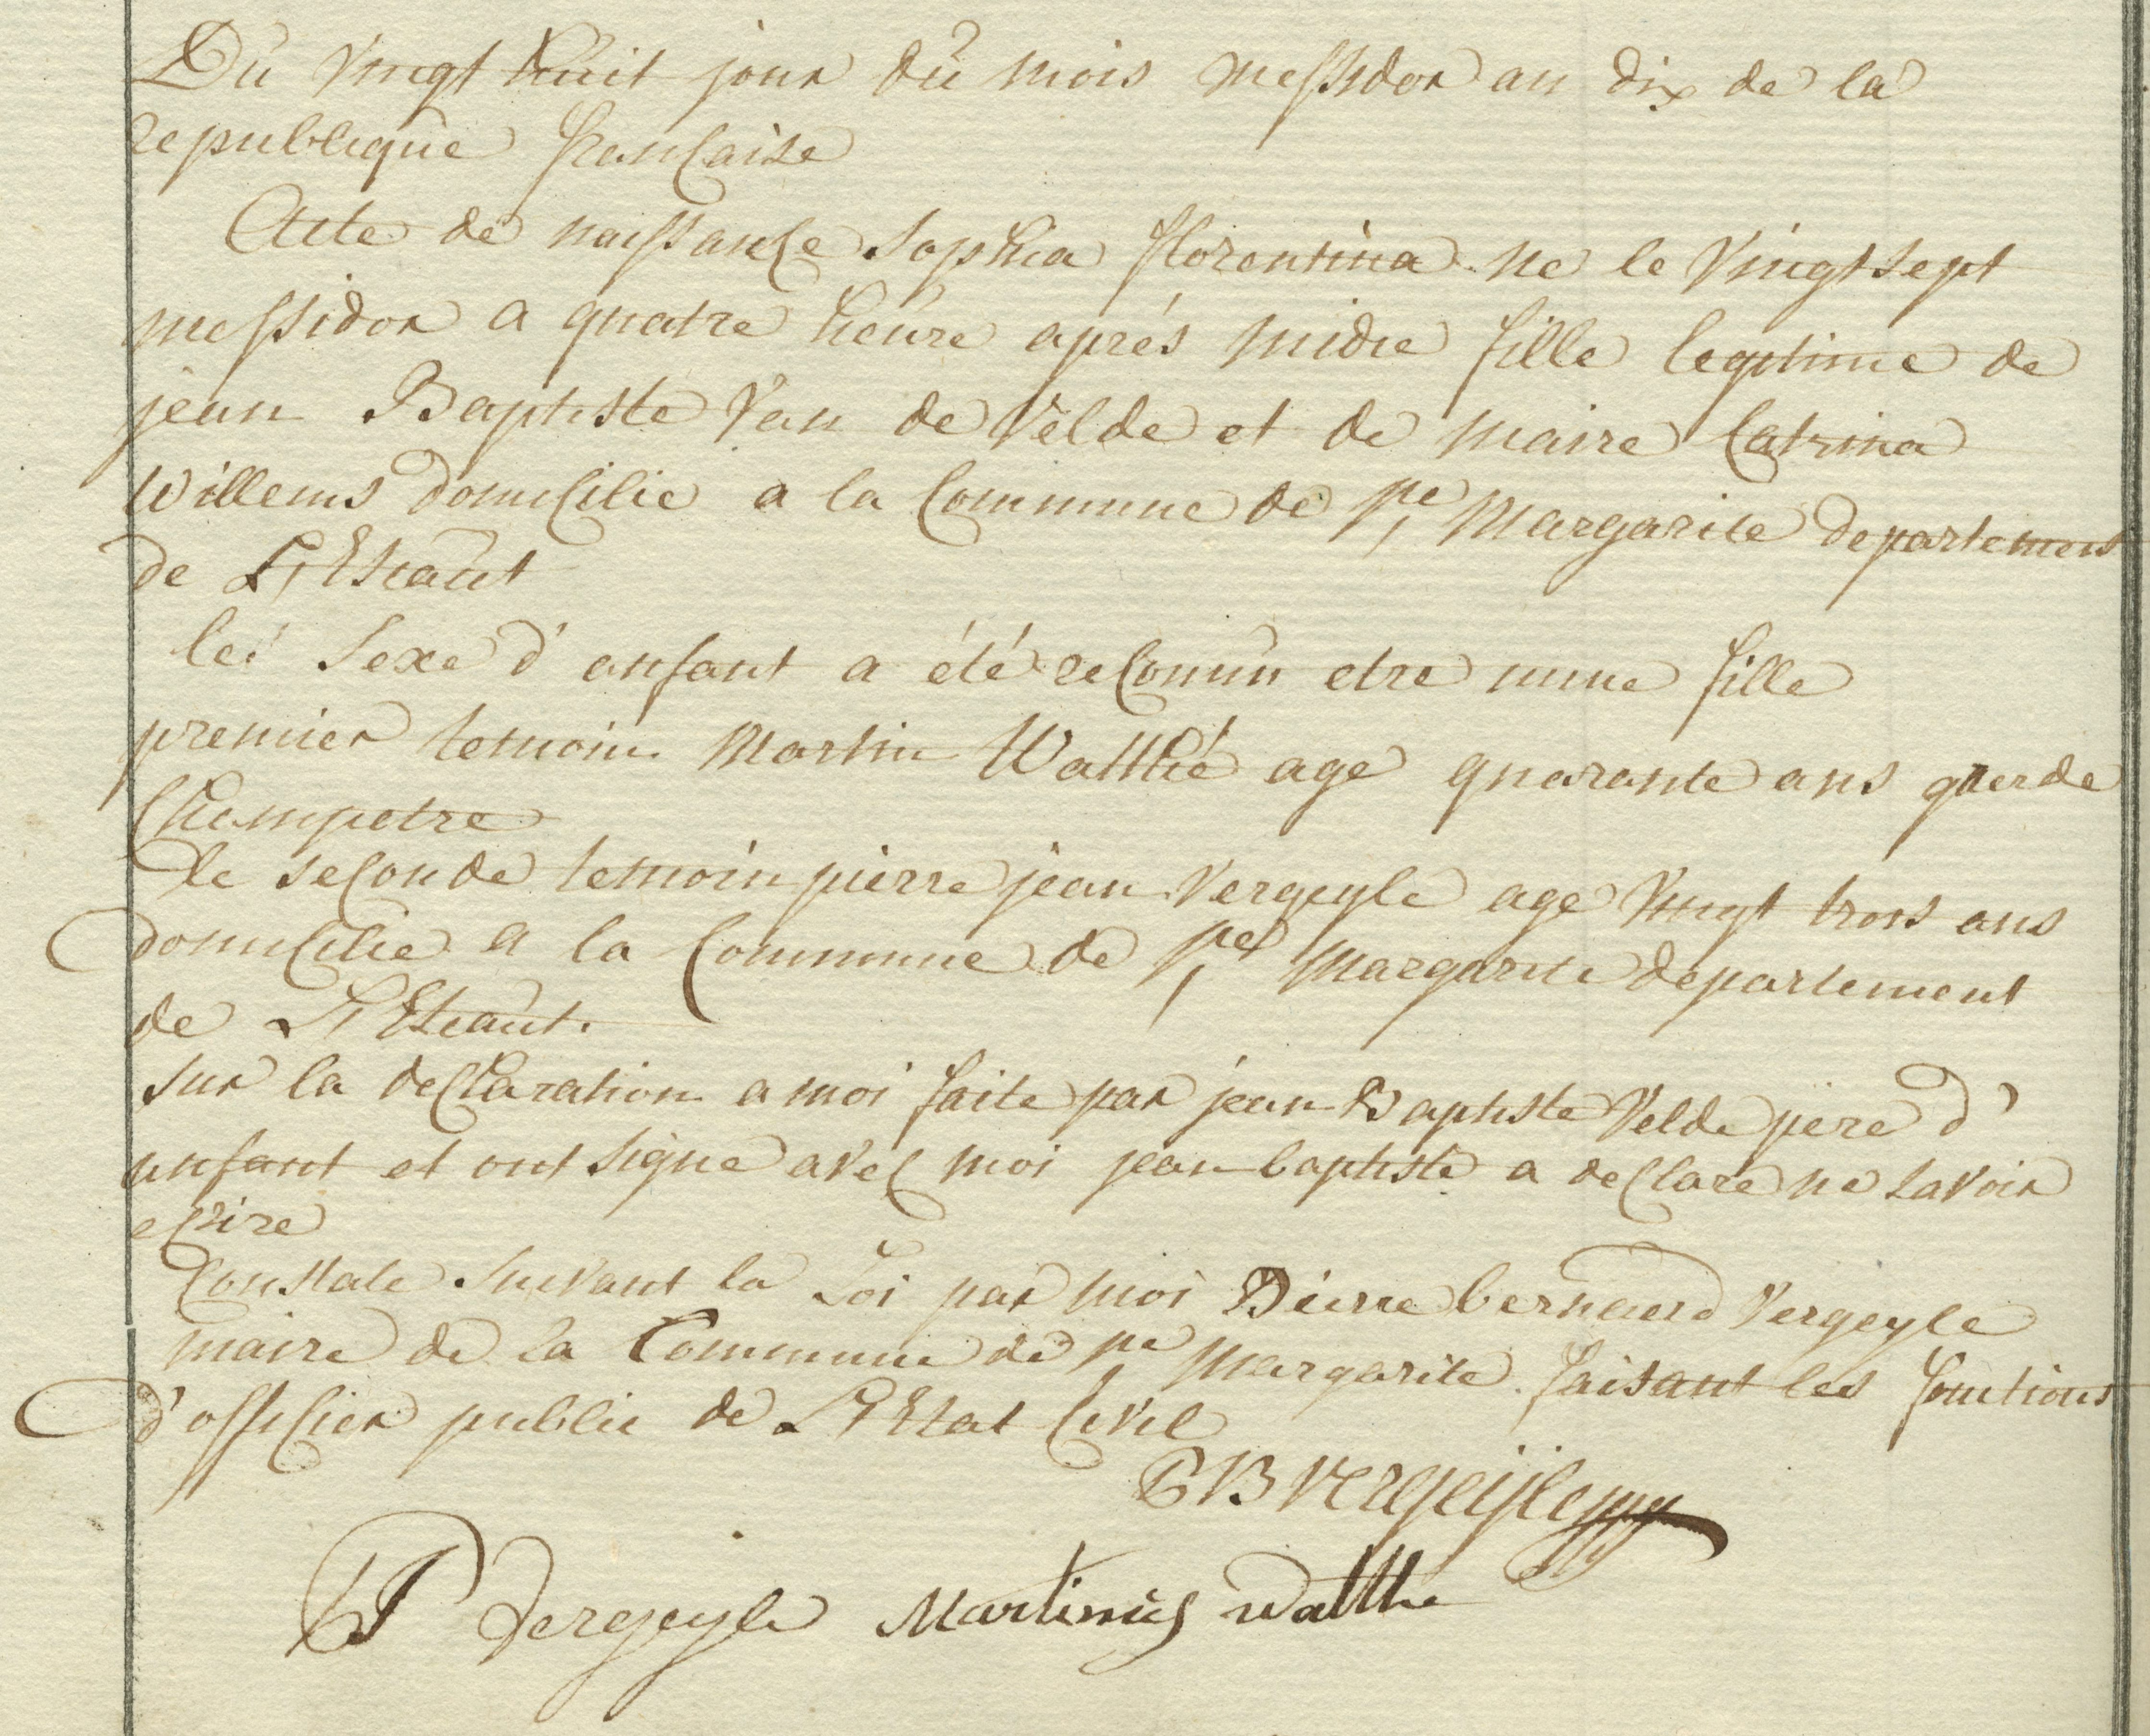 Du vingt huit jour du mois messidor an dix de la
republique francaise
Acte de naissance Sophia florentina ne le vingt sept
messidor a quatre heure aprés midie fille legitime de
jean Baptiste Van de Velde et de maire Catrina
Willems domicilie a la Commune de Ste Margarite departement
de L'Escaut
lei Sexe d'enfant a été reconnu etre unne fille
premier temoin Martin Watthé age quarante ans garde
Champetre
le seconde temoin pierre jean Vergeyle age Vingt trois ans
domicilie a la Commune de Ste Margarite departement
de L'Escaut.
sur la declaration a moi faite par jean Baptiste Velde pere d'
enfant et ont signe avec moi jean baptiste a declare ne savoir
ecrire
Constate suivant la Loi par moi Pierre bernaerd Vergeyle
maire de la Commune de Ste Margarite faisant les fonctions
d'officier public de L'Etat Civil
PB Vergeijle
PJ Vergeyle Martinus watthe